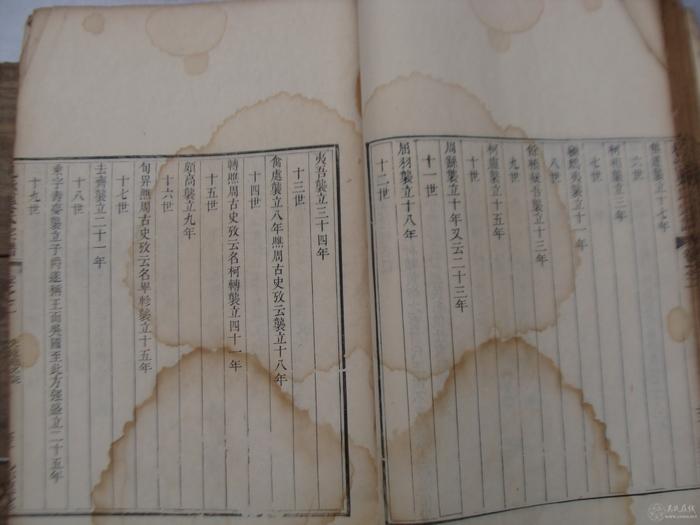 襲立十七年
六世
柯相襲立三年
七世
襲立十一年
八世
吾襲立十三年
九世
柯盧襲立十五年
十世
周繇襲立十年又云二十三年
十一世
屈羽襲立十八年
十二世
夷吾襲立三十四年
十三世
禽處襲立八年譙周古史攷云襲立十八年
十四世
轉譙周古史攷云名柯轉襲立四十一年
十五世
頗高襲立九年
十六世
句卑譙周古史攷云名畢軫襲立十五年
十七世
去齊襲立二十一年
十八世
子壽夢襲立子爵遂稱王而吳國至此方強盛立二十五年
十九世